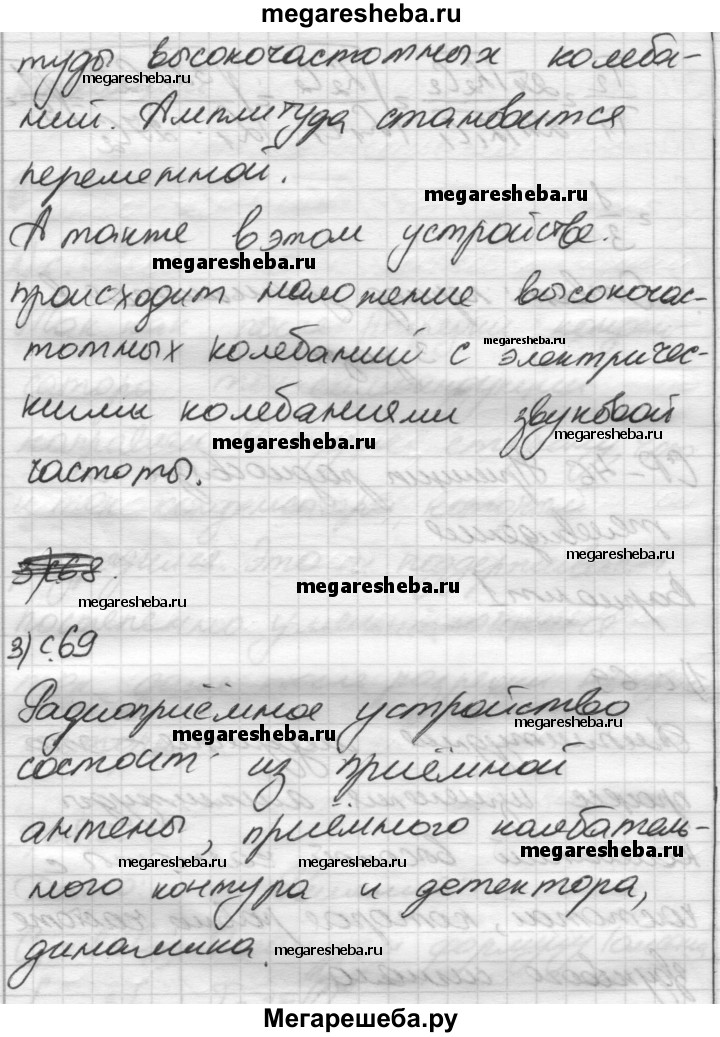 megaresheba.ru
туды высокочастотных колеба-
megaresheba.ru
ний. Амплитуда становится
переменной.
megaresheba.ru
А также в этом устройстве
megaresheba.ru
происходит наложение высокочас-
тотных колебаний с электричес-
megaresheba.ru
кими колебаниями звуковой
megaresheba.ru
megaresheba.ru
частоты.
megaresheba.ru
3) с.68.
megaresheba.ru
megaresheba.ru
3) с.69
Радиоприёмное устройство
megaresheba.ru
megaresheba.ru
состоит из приёмной
антены, приёмного колебатель-
megaresheba.ru
megaresheba.ru
megaresheba.ru
ного контура и детектора,
динамика.
megaresheba.ru
Мегарешеба.ру